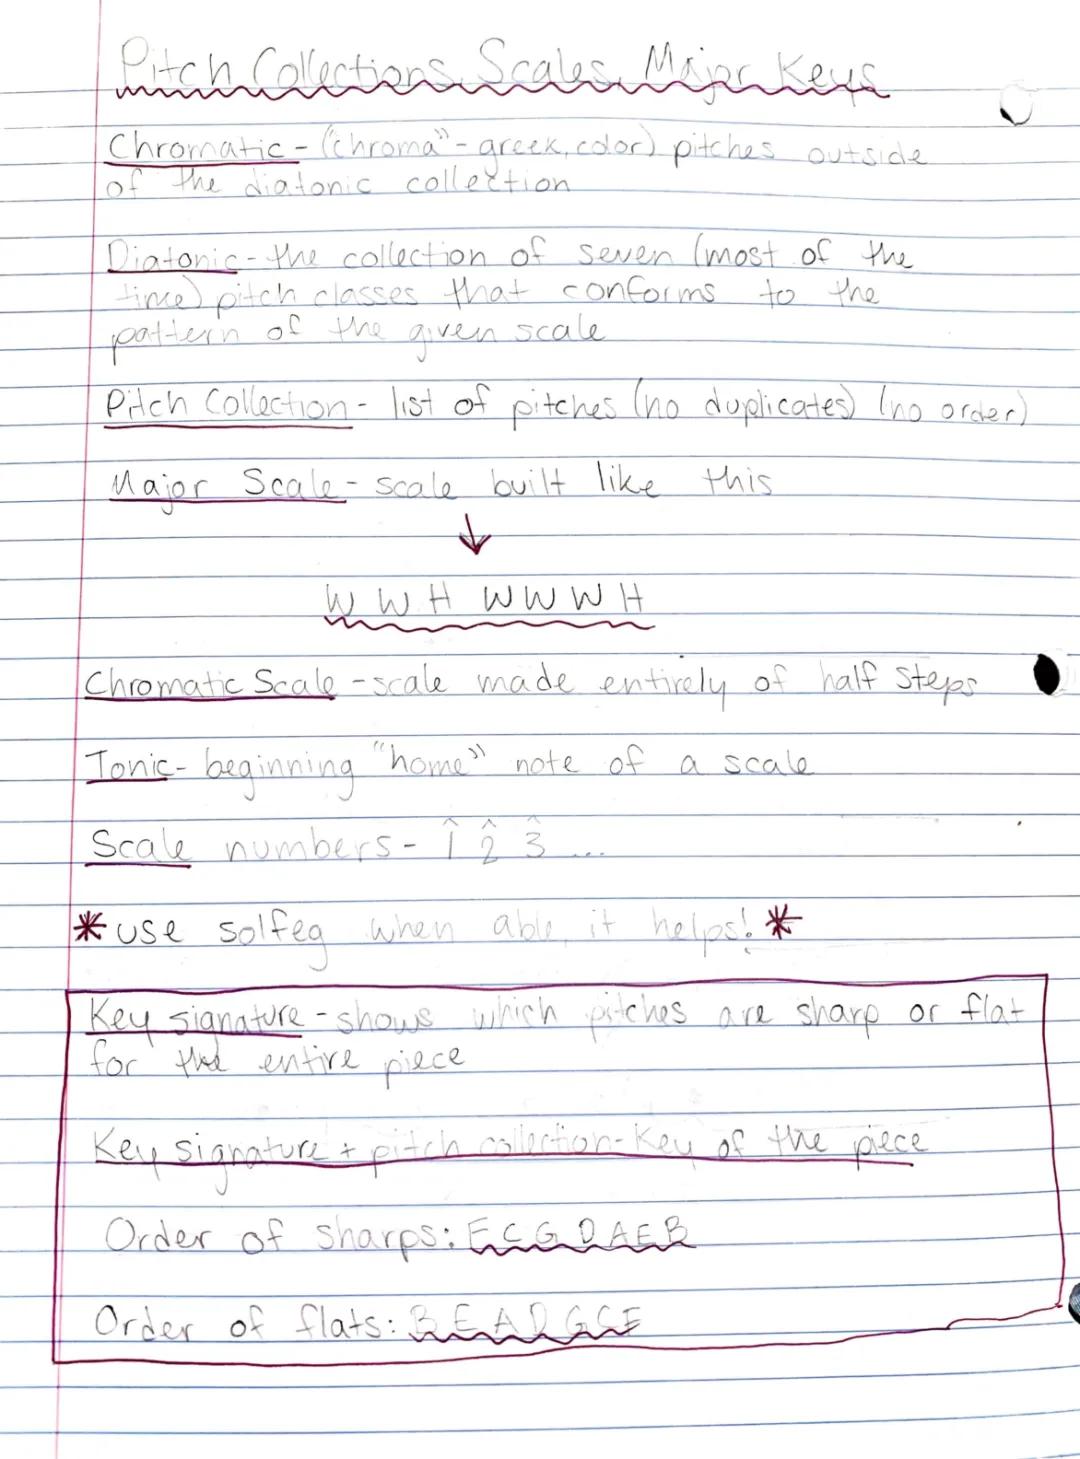 Pitch Collections, Scales, Major Keys
Chromatic - ("chroma" - greek, color) pitches outside
of the diatonic collection
Diatonic - the collection of seven (most of the
time) pitch classes that conforms to the
pattern of the given scale
Pitch Collection - list of pitches (no duplicates) (no order)
Major Scale - scale built like this
↓
W W H W W W H
Chromatic Scale - scale made entirely of half steps
Tonic - beginning "home" note of a scale
Scale numbers - 1̂ 2̂ 3̂ ...
* use solfeg when able, it helps! *
Key signature - shows which pitches are sharp or flat
for the entire piece
Key signature + pitch collection - Key of the piece
Order of sharps: F C G D A E B
Order of flats: B E A D G C F